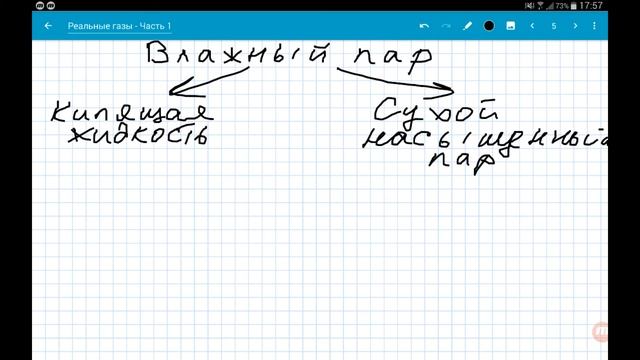 73% 17:57
Реальные газы - Часть 1
5
Влажный пар
Кипящая
жидкость
Сухой
насыщенный
пар